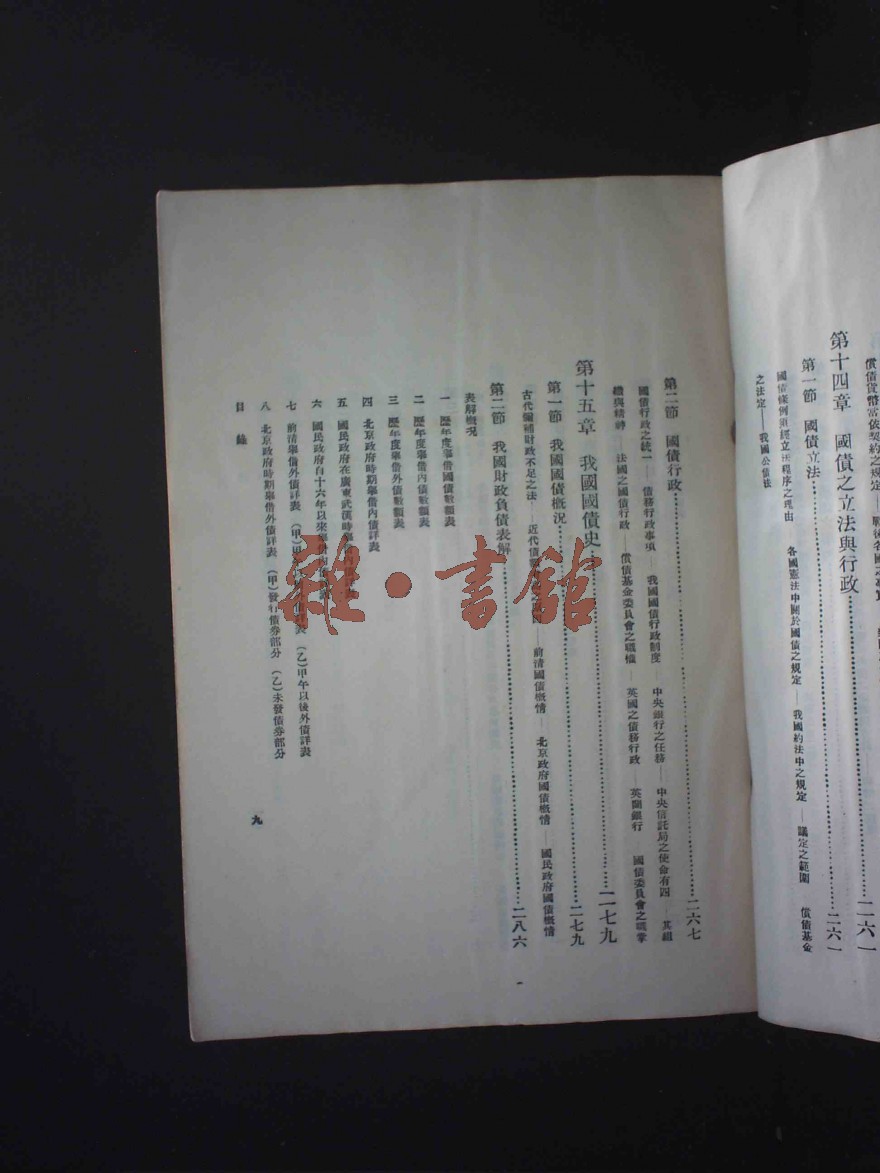 償債貨幣當依契約之規定——戰後各國之
第十四章 國債之立法與行政……二六一
第一節 國債立法……二六一
國債條例須經立法程序之理由 各國憲法中關於國債之規定——我國約法中之規定——議定之範圍 償債基金
之法定——我國公債法
第二節 國債行政……二六七
國債行政之統一——債務行政事項——我國國債行政制度——中央銀行之任務——中央信託局之使命有四——其組
織與精神——法國之國債行政——償債基金委員會之職權——英國之債務行政——英蘭銀行 國債委員會之職掌
第十五章 我國國債史……二七九
第一節 我國國債概況……二七九
古代彌補財政不足之法——近代債 ——前清國債概情——北京政府國債概情 國民政府國債概情
第二節 我國財政負債表解……二八六
表解概況
一 歷年度舉借國債數額表
二 歷年度舉借內債數額表
三 歷年度舉借外債數額表
四 北京政府時期舉借內債詳表
五 國民政府在廣東武漢時
六 國民政府自十六年以來舉借內
七 前清舉借外債詳表 (甲)甲 詳表 (乙)甲午以後外債詳表
八 北京政府時期舉借外債詳表 (甲)發行債券部分 (乙)未發債券部分
目錄
九
雜·書館